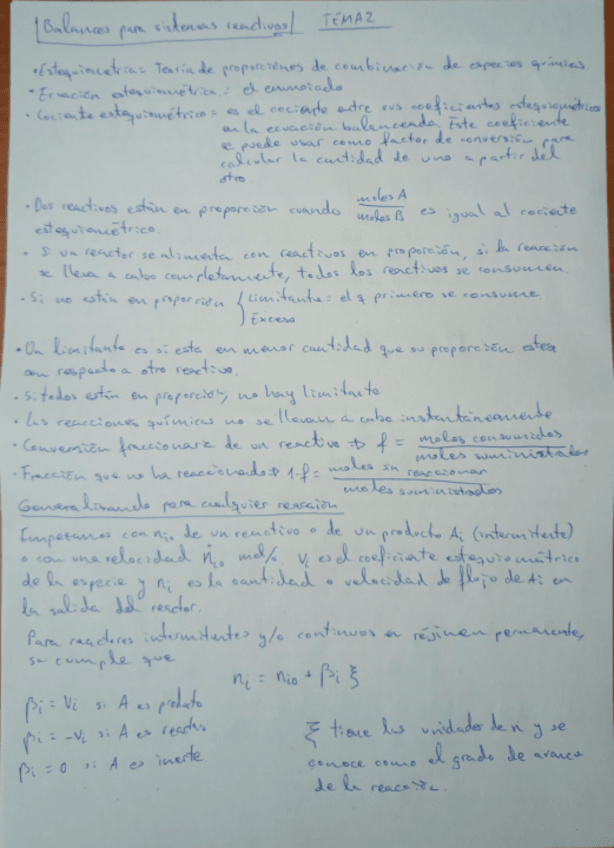 Balances para sistemas reactivos TEMA 2
• Estequiometría = Teoría de proporciones de combinación de especies químicas.
• Ecuación estequiométrica =
• Cociente estequiométrico = es el cociente entre sus coeficientes estequiométricos
en la ecuación balanceada. Este coeficiente
se puede usar como factor de conversión para
calcular la cantidad de uno a partir del
otro
• Dos reactivos están en proporción cuando moles A / moles B es igual al cociente
estequiométrico.
• Si un reactor se alimenta con reactivos en proporción, si la reacción
se lleva a cabo completamente, todos los reactivos se consumen.
• Si no están en proporción { Limitante = el q primero se consume
Exceso
• Un limitante es si esta en menor cantidad que su proporción esteq
con respecto a otro reactivo.
• Si todos están en proporción, no hay limitante
• Las reacciones químicas no se llevan a cabo instantáneamente
• Conversión fraccionaria de un reactivo → f = moles consumidos / moles suministrados
• Fracción que no ha reaccionado → 1-f = moles sin reaccionar / moles suministrados
Generalizando para cualquier reacción
Empezamos con ni0 de un reactivo o de un producto Ai (intermitente)
o con una velocidad ṅi0 mol/s. Vi es el coeficiente estequiométrico
de la especie y ni es la cantidad o velocidad de flujo de Ai en
la salida del reactor.
Para reactores intermitentes y/o continuos en régimen permanente,
se cumple que
ni = ni0 + βi ξ
βi = Vi si A es producto
βi = -Vi si A es reactivo
βi = 0 si A es inerte
ξ tiene las unidades de n y se
conoce como el grado de avance
de la reacción.